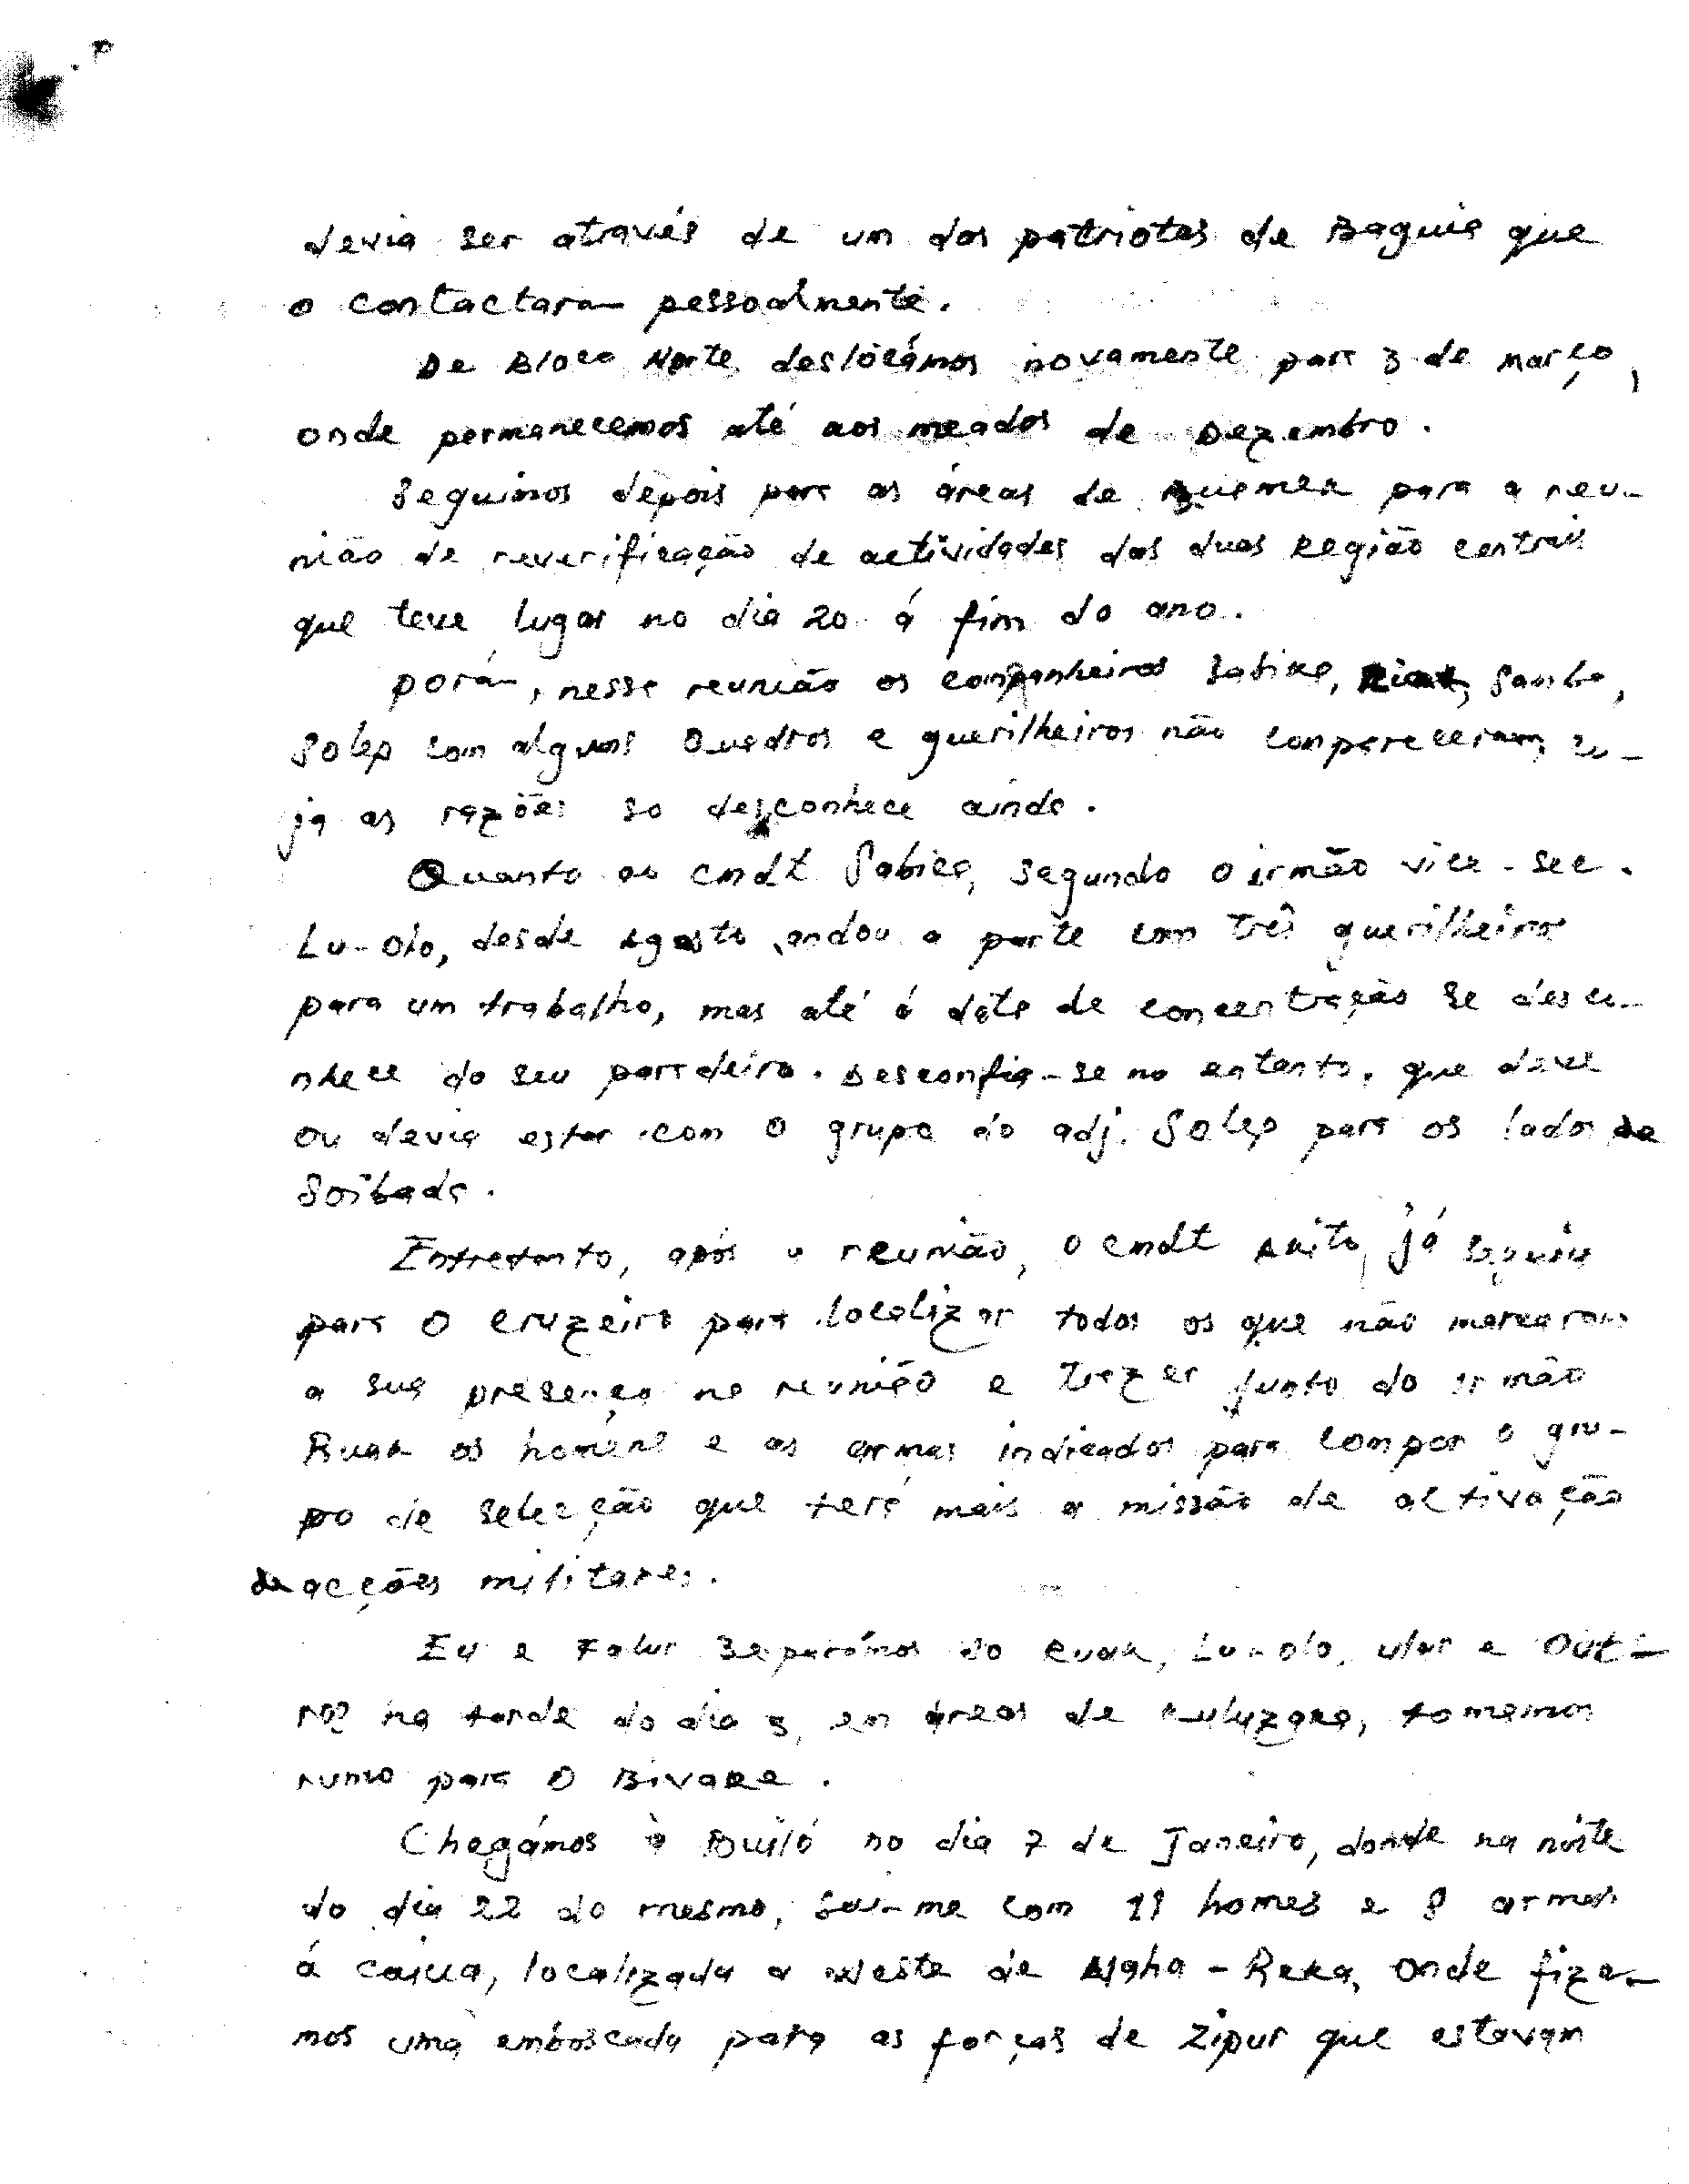 devia ser através de um dos patriotas de Baguia que
o contactaram pessoalmente.
De Bloco Norte deslocámos novamente para 3 de março,
onde permanecemos até aos meados de Dezembro.
Seguimos depois para as áreas de para a reu-
nião de reverificação de actividades das duas Região centrais
que teve lugar no dia 20 á fim do ano.
porém, nesse reunião os companheiros Sabica, Samba,
Solep com alguns Quadros e guerilheiros não compareceram, cu-
ja as razões so desconhece ainda.
Quanto ao cmdt Sabica, segundo o irmão vice-sec.
Lu-Olo, desde Agosto andou a parte com três guerilheiros
para um trabalho, mas até á data de concentração se desco-
nhece do seu parradeiro. Desconfia-se no entanto, que deve
ou devia estar com o grupo do adj. Solep para os lados de
Soibada.
Entretanto, após a reunião, o cmdt já seguiu
para o cruzeiro para localizar todos os que não marcaram
a sua presença na reunião e trazer junto do irmão
Ruak os homens e as armas indicados para compor o gru-
po de selecção que terá mais a missão de activação
de acções militares.
Eu e Falur Separámos do Ruak, Lu-olo, ular e Out-
ros na tarde do dia 3, em áreas de tomamos
rumo para o Bivake.
Chegámos à Builó no dia 7 de Janeiro, donde na noite
do dia 22 do mesmo, saí-me com 11 homes e 8 armas
á caiua, localizada a weste de Afaha-Reka, onde fize-
mos uma emboscada para as forças de Zipur que estavam